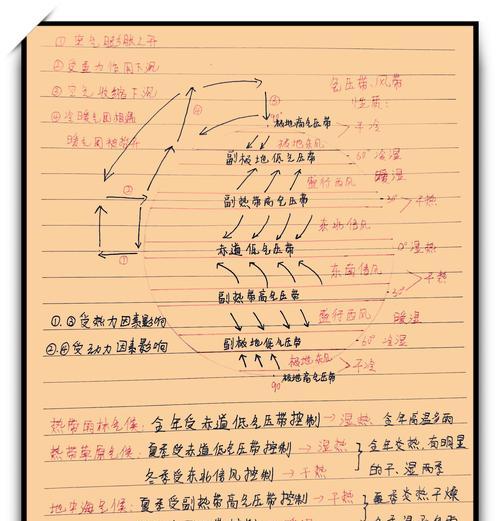 ① 空气膨胀上升
②受重力作用下沉
③空气收缩下沉
④冷暖气团相遇
暖气团相抬升
气压带、风带
性质：
④
③
90° 极地高气压带
干冷
极地东风
副极地低气压带 60° 冷湿
盛行西风 暖湿
②
副热带高气压带 30° 干热
东北信风
赤道低气压带 0° 湿热
①
东南信风
干热
副热带高气压带 30°
①.③受热力因素影响
盛行西风 暖湿
②.④受动力因素影响
副极地低气压带 60° 冷湿
极地东风
干冷
90° 极地高气压带
热带雨林气候：全年受赤道低气压带控制→湿热 全年高温多雨
热带草原气候：夏季受赤道低气压带控制→湿热 全年炎热，有明显
冬季受东北信风控制→干热 的干、湿两季
地中海气候：夏季受副热带高气压带控制→干热 夏季炎热干燥